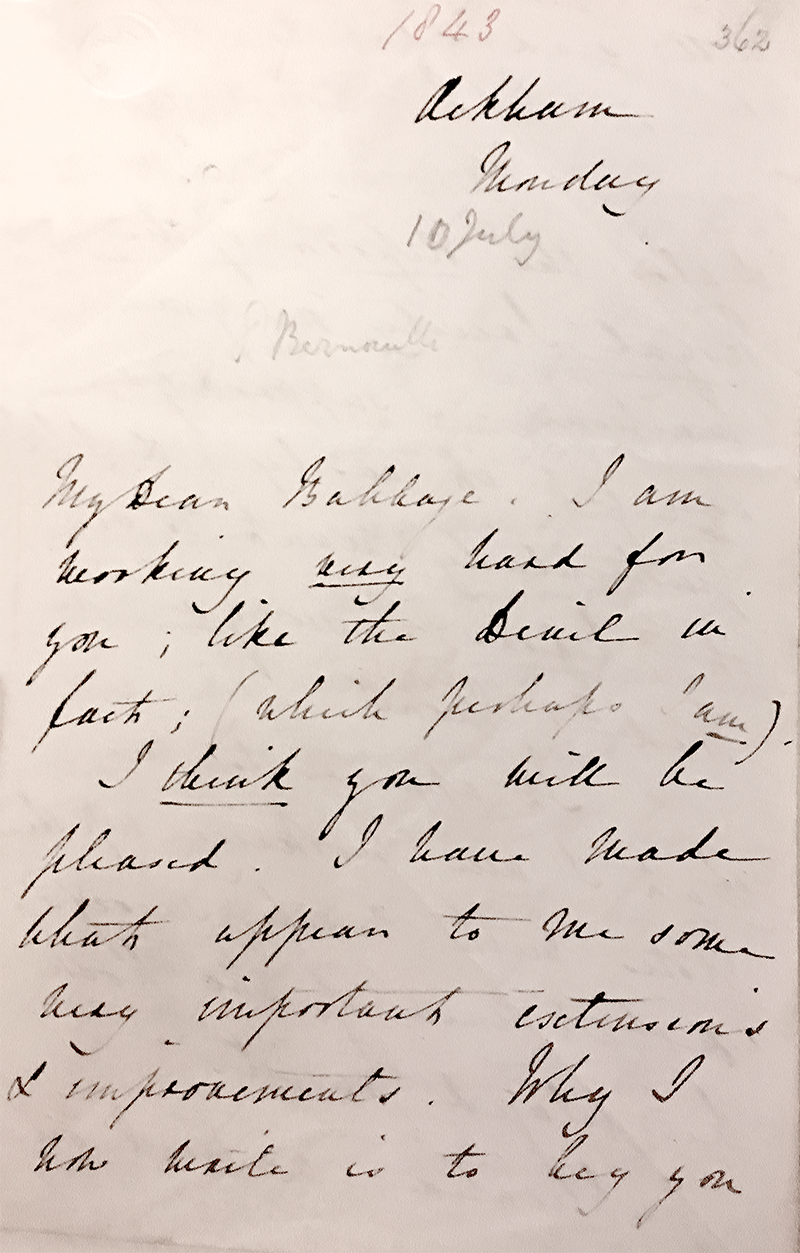 1843
362
Ockham
Monday
10 July
Bernoulli
My Dear Babbage. I am
working very hard for
you; like the Devil in
fact; (which perhaps I am).
I think you will be
pleased. I have made
what appear to me some
very important extensions
& improvements. Why I
now write is to beg you